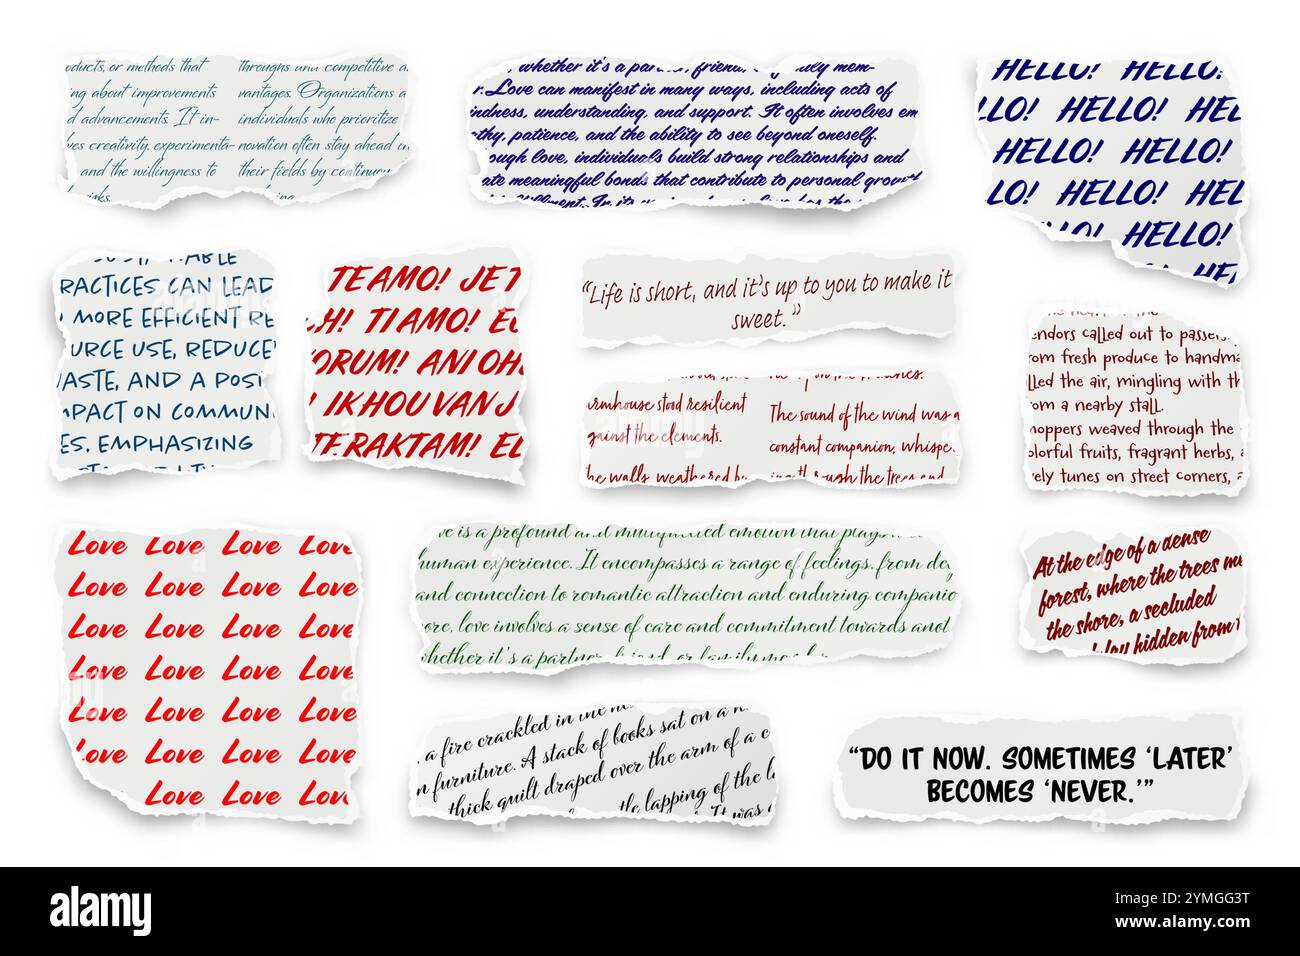 oducts, or methods that
ng about improvements
d advancements. It in-
ves creativity, experimenta-
and the willingness to
throughs and competitive a
vantages. Organizations a
individuals who prioritize
novation often stay ahead in
their fields by continuou
whether it's a partner, friend, or family mem-
r. Love can manifest in many ways, including acts of
indness, understanding, and support. It often involves em
thy, patience, and the ability to see beyond oneself.
ough love, individuals build strong relationships and
ate meaningful bonds that contribute to personal growth
HELLO! HELLO!
LLO! HELLO! HEL
HELLO! HELLO!
LO! HELLO! HEL
HELLO!
HEL
RACTICES CAN LEAD
MORE EFFICIENT RE
URCE USE, REDUCE
ASTE, AND A POSI
MPACT ON COMMUN
ES. EMPHASIZING
TE AMO! JE T
CH! TI AMO! EU
ORUM! ANI OH
IK HOU VAN J
TE RAKTAM! EU
“Life is short, and it’s up to you to make it
sweet.”
armhouse stood resilient
gainst the elements.
he walls, weathered by
The sound of the wind was a
constant companion, whispe
ing through the trees and
endors called out to passers
rom fresh produce to handma
lled the air, mingling with th
rom a nearby stall.
hoppers weaved through the
olorful fruits, fragrant herbs, a
vely tunes on street corners, a
Love Love Love Love
Love Love Love Love
Love Love Love Love
Love Love Love Love
Love Love Love Love
Love Love Love Love
Love Love Love
ve is a profound and multifaceted emotion that plays
human experience. It encompasses a range of feelings, from dee
and connection to romantic attraction and enduring companio
ore, love involves a sense of care and commitment towards anot
whether it's a partner, friend, or family member
At the edge of a dense
forest, where the trees me
the shore, a secluded
hidden from
a fire crackled in the
n furniture. A stack of books sat on a
thick quilt draped over the arm of a c
the lapping of the l
It was
“DO IT NOW. SOMETIMES ‘LATER’
BECOMES ‘NEVER.’”
alamy
Image ID: 2YMGG3T
www.alamy.com